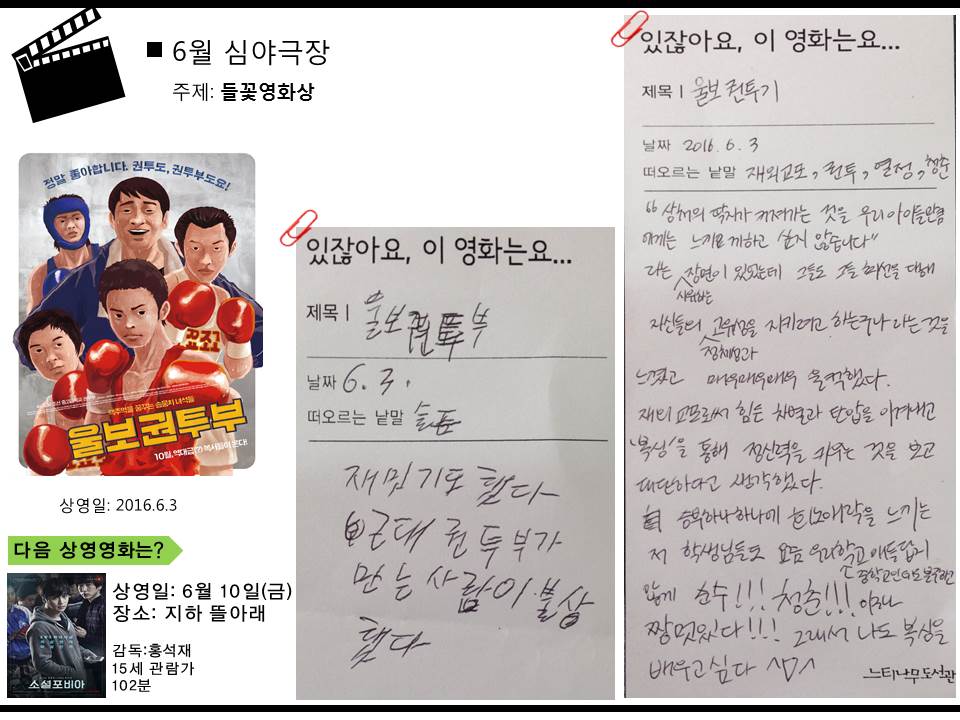 ■ 6월 심야극장
주제: 들꽃영화상
정말 좋아합니다. 권투도, 권투부도요!
꼬꼬
울보권투부
상영일: 2016.6.3
다음 상영영화는?
상영일: 6월 10일(금)
장소: 지하 뜰아래
감독:홍석재
15세 관람가
102분
소셜포비아
있잖아요, 이 영화는요...
제목 | 울보권투부
날짜 6. 3.
떠오르는 낱말 슬픔
재밌기도 했다
근대 권투부가
만는 사람이 불상
했다
있잖아요, 이 영화는요...
제목 | 울보 권투기
날짜 2016. 6. 3
떠오르는 낱말 재외교포, 권투, 열정, 청춘
"상처의 딱지가 커져가는 것을 우리 아이들만큼
에게는 느끼게 하고 싶지 않습니다"
라는 장면이 있었는데 그들도 그들 최선을 다해
싸워하는
자신들의 고유성을 지키려고 하는구나 라는 것을
정체성과
느꼈고 매우매우매우 울컥했다.
재외 교포로써 힘든 차별과 탄압을 이겨내고
'복싱'을 통해 정신력을 키우는 것을 보고
대단하다고 생각했다.
승부 하나하나에 희노애락을 느끼는
저 학생님들도 요즘 우리학교 애들답지
않게 순수!!! 청춘!!! 이라니
짱멋있다!!! 그래서 나도 복싱을
배우고싶다 ^^
느티나무도서관